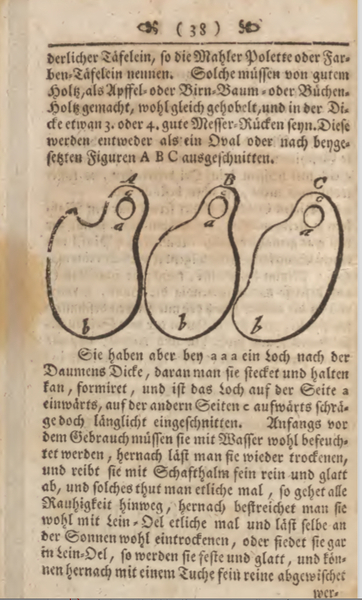 ( 38 )
derlicher Täfelein, so die Mahler Polette oder Far-
ben-Täfelein nennen. Solche müssen von gutem
Holtz, als Apffel- oder Birn-Baum- oder Büchen-
Holtz gemacht, wohl gleich gehobelt, und in der Di-
cke etwan 3. oder 4. gute Messer-Rücken seyn. Diese
werden entweder als ein Oval oder nach beyge-
setzten Figuren A B C ausgeschnitten.
A B C
c c c
a a a
b b b
Sie haben aber bey a a a ein Loch nach der
Daumens Dicke, daran man sie stecket und halten
kan, formiret, und ist das Loch auf der Seite a
einwärts, auf der andern Seiten c aufwärts schrä-
ge doch länglicht eingeschnitten. Anfangs vor
dem Gebrauch müssen sie mit Wasser wohl befeuch-
tet werden, hernach läst man sie wieder trockenen,
und reibt sie mit Schafthalm fein rein und glatt
ab, und solches thut man etliche mal, so gehet alle
Rauhigkeit hinweg, hernach bestreichet man sie
wohl mit Lein-Oel etliche mal und läst selbe an
der Sonnen wohl eintrockenen, oder siedet sie gar
in Lein-Oel, so werden sie feste und glatt, und kön-
nen hernach mit einem Tuche fein reine abgewischet
wer-